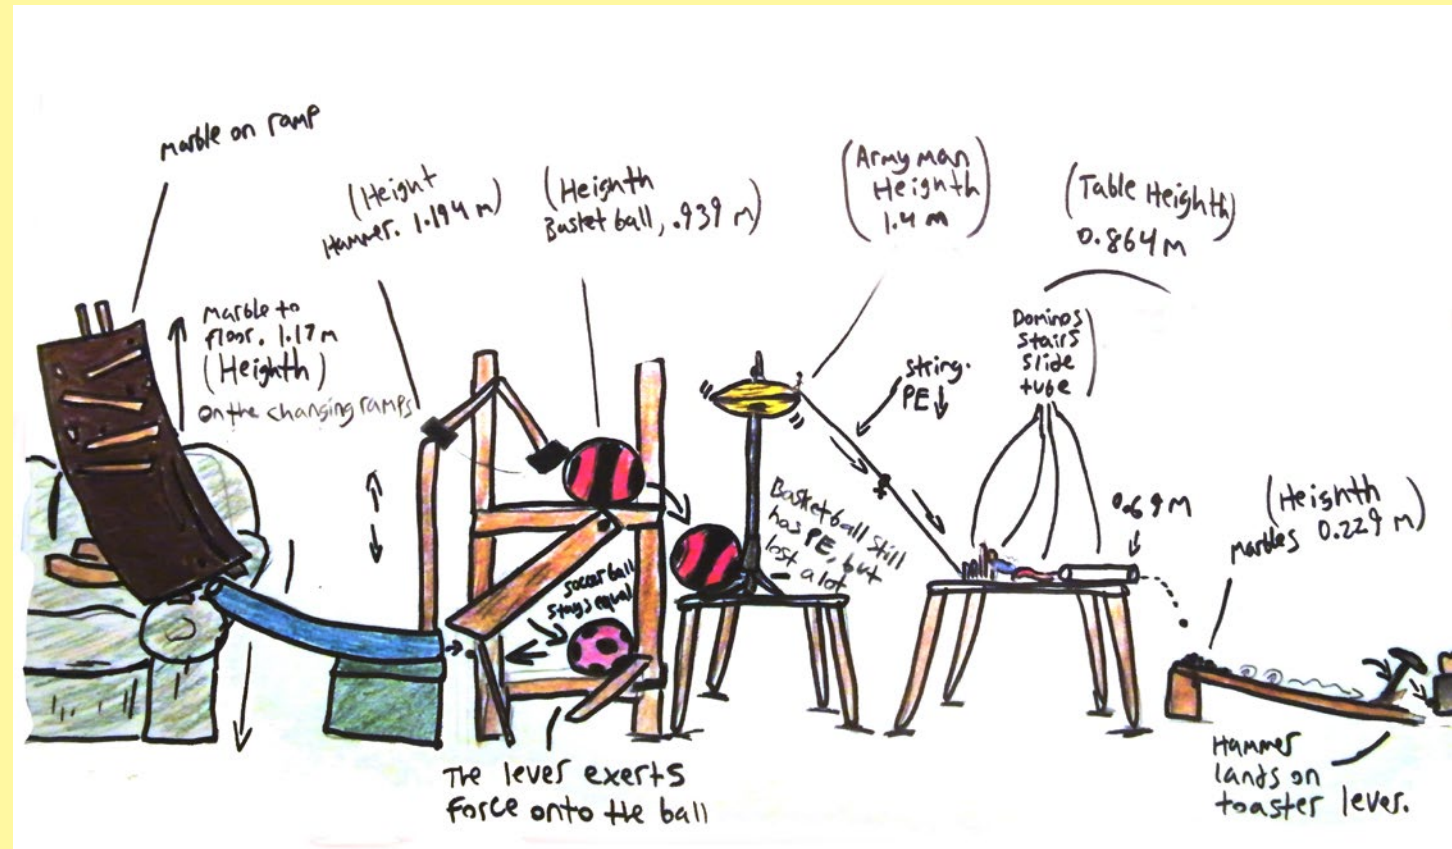 marble on ramp
(Height
Hammer. 1.194 m)
(Heighth
Basket ball, .939 m)
(Army man
Heighth
1.4 m)
(Table Heighth)
0.864 m
marble to
floor. 1.17 m
(Heighth)
on the changing ramps
string.
PE ↓
Dominos
stairs
slide
tube
Basketball still
has PE, but
lost a lot
0.69 m
(Heighth
marbles 0.229 m)
soccer ball
stays equal
The lever exerts
force onto the ball
Hammer
lands on
toaster lever.